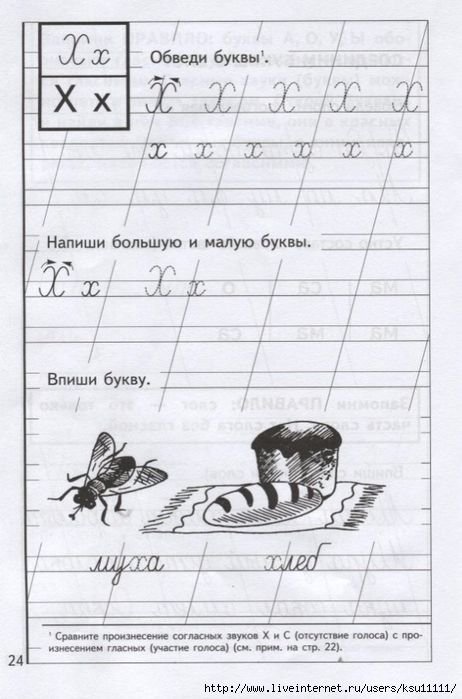 Х х
Обведи буквы¹.
Х х Х Х Х Х Х
х х х х х х
Напиши большую и малую буквы.
Х х Х х
Впиши букву.
муха хлеб
¹ Сравните произнесение согласных звуков Х и С (отсутствие голоса) с про-
изнесением гласных (участие голоса) (см. прим. на стр. 22).
24
http://www.liveinternet.ru/users/ksu11111/